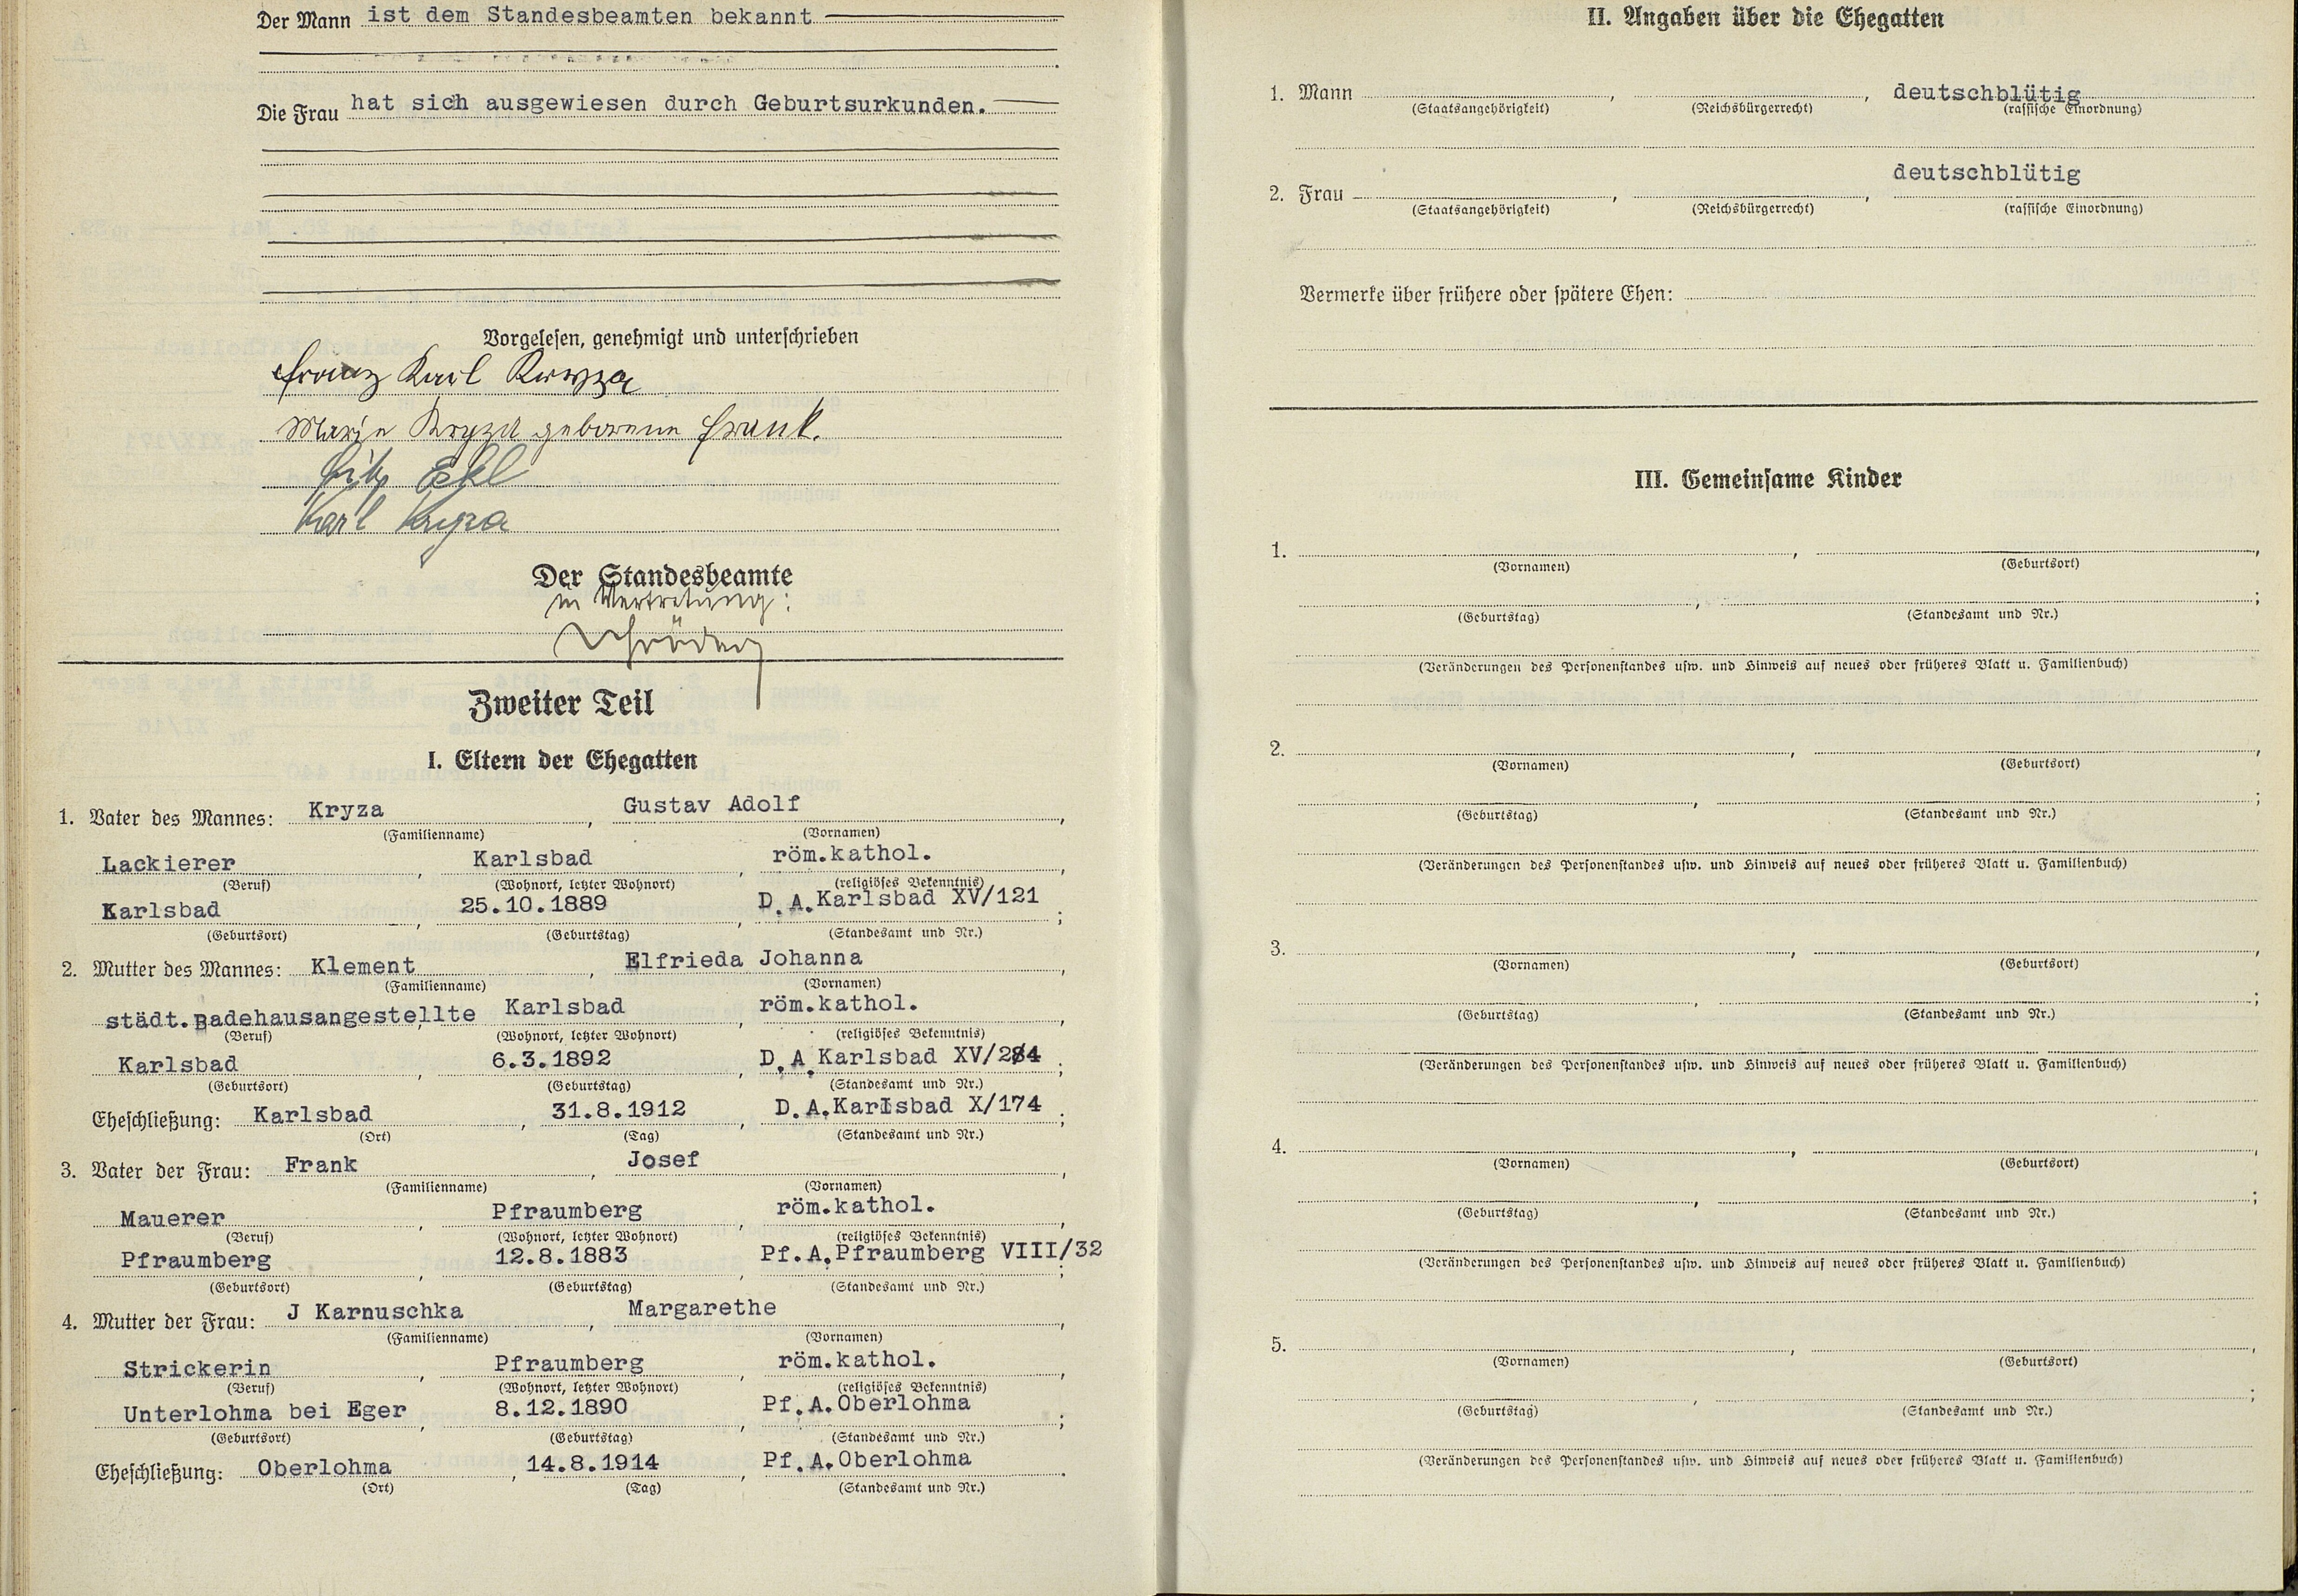 Der Mann ist dem Standesbeamten bekannt
Die Frau hat sich ausgewiesen durch Geburtsurkunden.
Vorgelesen, genehmigt und unterschrieben
Franz Karl Kryza
Marie Kryza geborene Frank.
Fritz
Karl Kryza
Der Standesbeamte
in Vertretung:
Zweiter Teil
I. Eltern der Ehegatten
1. Vater des Mannes: Kryza, Gustav Adolf,
(Familienname) (Vornamen)
Lackierer, Karlsbad, röm.kathol.,
(Beruf) (Wohnort, letzter Wohnort) (religiöses Bekenntnis)
Karlsbad, 25.10.1889, D.A.Karlsbad XV/121;
(Geburtsort) (Geburtstag) (Standesamt und Nr.)
2. Mutter des Mannes: Klement, Elfrieda Johanna,
(Familienname) (Vornamen)
städt.Badehausangestellte, Karlsbad, röm.kathol.,
(Beruf) (Wohnort, letzter Wohnort) (religiöses Bekenntnis)
Karlsbad, 6.3.1892, D.A.Karlsbad XV/284;
(Geburtsort) (Geburtstag) (Standesamt und Nr.)
Eheschließung: Karlsbad, 31.8.1912, D.A.Karlsbad X/174;
(Ort) (Tag) (Standesamt und Nr.)
3. Vater der Frau: Frank, Josef,
(Familienname) (Vornamen)
Mauerer, Pfraumberg, röm.kathol.,
(Beruf) (Wohnort, letzter Wohnort) (religiöses Bekenntnis)
Pfraumberg, 12.8.1883, Pf.A.Pfraumberg VIII/32;
(Geburtsort) (Geburtstag) (Standesamt und Nr.)
4. Mutter der Frau: J Karnuschka, Margarethe,
(Familienname) (Vornamen)
Strickerin, Pfraumberg, röm.kathol.,
(Beruf) (Wohnort, letzter Wohnort) (religiöses Bekenntnis)
Unterlohma bei Eger, 8.12.1890, Pf.A.Oberlohma;
(Geburtsort) (Geburtstag) (Standesamt und Nr.)
Eheschließung: Oberlohma, 14.8.1914, Pf.A.Oberlohma.
(Ort) (Tag) (Standesamt und Nr.)
II. Angaben über die Ehegatten
1. Mann , , deutschblütig
(Staatsangehörigkeit) (Reichsbürgerrecht) (rassische Einordnung)
deutschblütig
2. Frau , ,
(Staatsangehörigkeit) (Reichsbürgerrecht) (rassische Einordnung)
Vermerke über frühere oder spätere Ehen:
III. Gemeinsame Kinder
1. , ,
(Vornamen) (Geburtsort)
, ;
(Geburtstag) (Standesamt und Nr.)
(Veränderungen des Personenstandes usw. und Hinweis auf neues oder früheres Blatt u. Familienbuch)
2. , ,
(Vornamen) (Geburtsort)
, ;
(Geburtstag) (Standesamt und Nr.)
(Veränderungen des Personenstandes usw. und Hinweis auf neues oder früheres Blatt u. Familienbuch)
3. , ,
(Vornamen) (Geburtsort)
, ;
(Geburtstag) (Standesamt und Nr.)
(Veränderungen des Personenstandes usw. und Hinweis auf neues oder früheres Blatt u. Familienbuch)
4. , ,
(Vornamen) (Geburtsort)
, ;
(Geburtstag) (Standesamt und Nr.)
(Veränderungen des Personenstandes usw. und Hinweis auf neues oder früheres Blatt u. Familienbuch)
5. , ,
(Vornamen) (Geburtsort)
, ;
(Geburtstag) (Standesamt und Nr.)
(Veränderungen des Personenstandes usw. und Hinweis auf neues oder früheres Blatt u. Familienbuch)